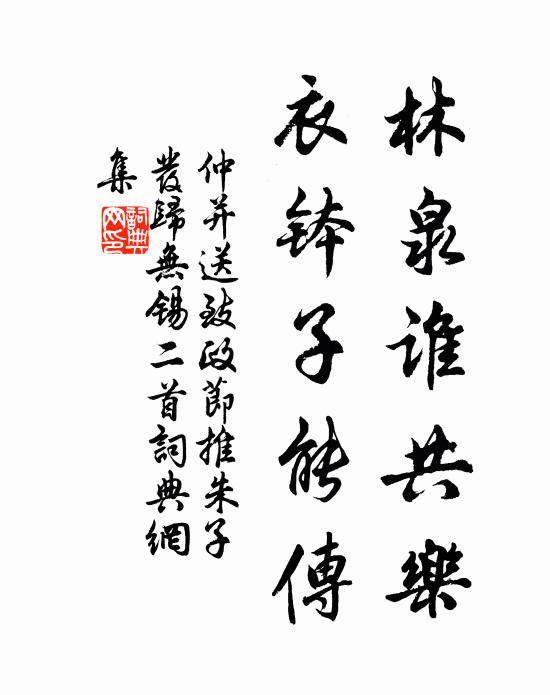 林泉誰共樂
衣鉢子能傳
仲并送致政節推朱子
發歸無錫二首詞典網
集
詞典
网印